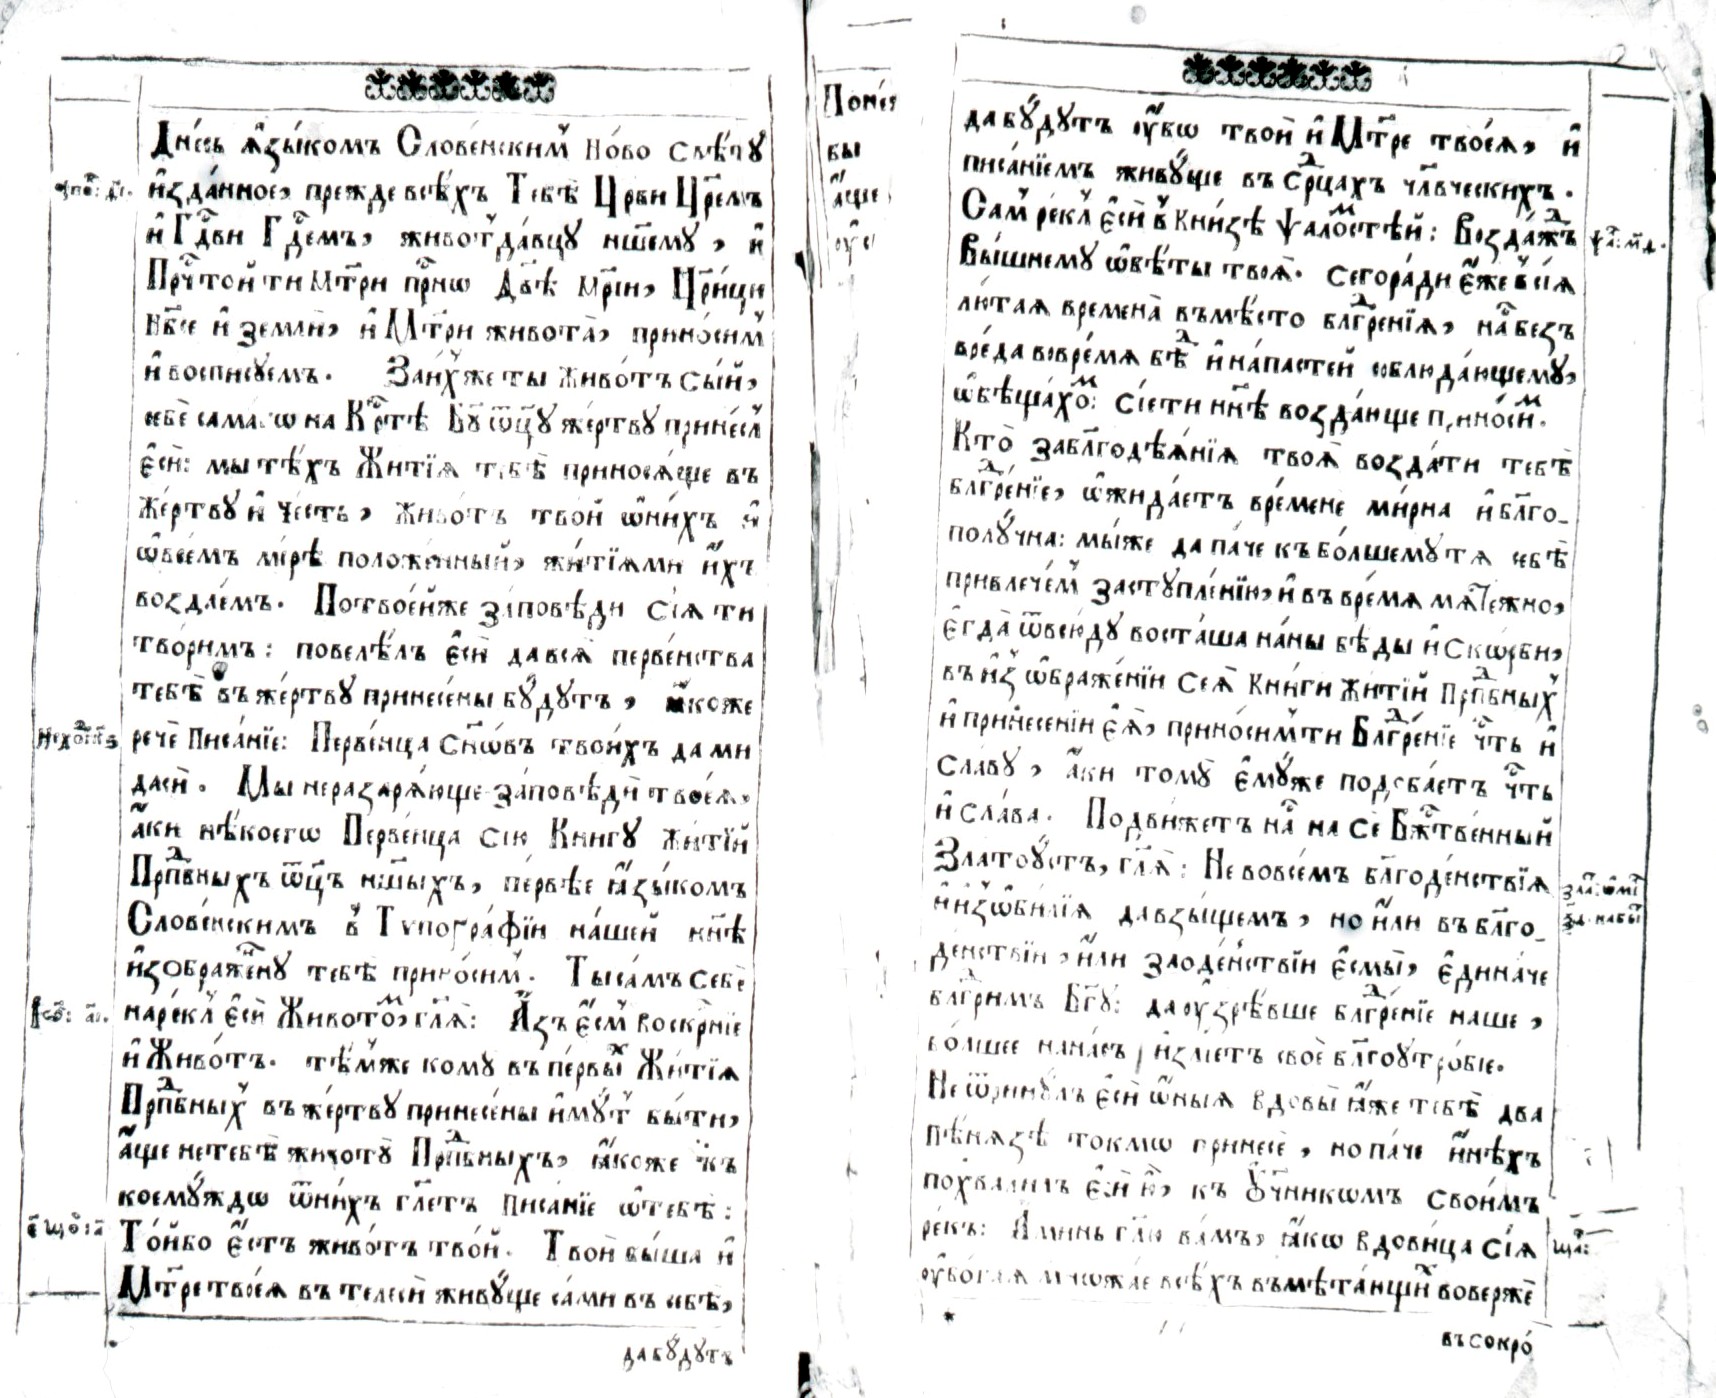 Дне́сь ꙗ҆зы́комъ Слове́нскимъ но́во свѣ́ту
и҆зда́нное, прежде всѣ́хъ Тебѣ̀ Цр҃ви Цр҃емъ
и҆ Гдⷭ҇ви Гдⷭ҇емъ, живот̾да́вцу нш҃ему, и҆
Прчⷭ҇той ти Мт҃ри прⷭ҇нѡ Дв҃ѣ Мр҃іи, Цр҃и́ци
Нб҃се и҆ землѝ, и҆ Мт҃ри живота̀, прино́сим̾
и҆ восписуемъ. Зане́же ты живо́тъ сы́й,
себѐ самаго на Крⷭ҇тѣ Бг҃у ѿцꙋ̀ же́ртву прине́сл̾
є҆сѝ: мы тѣ́хъ Житїѧ тебѣ̀ приносѧ́ще въ
же́ртву и҆ че́сть, живо́тъ твой ѡ҆ни́хъ и҆
ѡ҆все́мъ ми́рѣ положе́нный, жи́тїѧми и҆́хъ
воздае́мъ. Потвое́йже за́повѣди сїѧ ти
твори́мъ: повелѣ́лъ є҆сѝ да всѧ̀ перве́нства
тебѣ̀ въ же́ртву принесе́ны бꙋ́дутъ, ꙗ҆́коже
речѐ писа́нїе: Перве́нца сн҃ѡ́въ твои́хъ да ми
дасѝ. Мы неразарѧ́юще за́повѣди твоеѧ̀,
а҆́ки нѣ́коегѡ Перве́нца сїю Книгу жи́тїй
Прпⷣбныхъ ѿц҃ъ нш҃ыхъ, пе́рвѣе ꙗ҆зы́комъ
Слове́нскимъ в̾ Тѵпогра́фїи на́шей нн҃ѣ
и҆зображе́нну тебѣ̀ прино́сим̾. Ты са́мъ себѐ
наре́кл̾ є҆сѝ Живото́мъ, гл҃ѧ: А҆́зъ є҆́смь воскр҃нїе
и҆ Живо́тъ. тѣ́мже кому въ пе́рвыхъ Жи́тїѧ
Прпⷣбныхъ въ же́ртву принесе́ны и҆мꙋ́тъ бы́ти,
а҆́ще не тебѣ̀ животꙋ̀ Прпⷣбныхъ, ꙗ҆́коже къ
коемꙋ́ждѡ ѿни́хъ гл҃етъ писа́нїе ѡ҆тебѣ̀:
То́йбо є҆́стъ живо́тъ тво́й. Твоѝ бы́ша и҆
Мт҃ре твоеѧ̀ въ телесѝ живꙋ́ще са́ми въ себѣ̀,
да бꙋ́дутъ
да бꙋ́дутъ ᲂу҆́бѡ твоѝ и҆ Мт҃ре твоеѧ̀, и҆
писа́нїемъ живꙋ́ще въ Срⷣцахъ чл҃вческихъ.
Сам̾ ре́кл̾ є҆сѝ в̾ кни́зѣ Ѱаломстѣй: Возда́ждь
Вы́шнему ѡ҆бѣ́ты твоѧ̀. Сегора́ди є҆́же в̾ сїѧ̀
лю́таѧ временà въмѣ́сто блгⷣренїѧ, на́съ безъ
вре́да во вре́мѧ бѣ́дъ и҆ на́пастей соблюда́ющему,
ѡ҆бѣща́хомъ: сїе ти нн҃ѣ возда́нще прино́симъ.
Кто̀ заблгодѣѧ́нїѧ твоѧ̀ возда́ти тебѣ̀
блгⷣре́нїе, ѡ҆жида́етъ вре́мене ми́рна и҆ бл҃го-
полꙋ́чна: мы́же да па́че къ бо́лшему тѧ себѣ̀
привлече́м̾ заступле́нїю, и҆ въ вре́мѧ мѧте́жно,
є҆гда̀ ѿвсю́ду воста́ша на́ны бѣ́ды и҆ ско́рби,
въ и҆з̾ѡ҆браже́нїи сеѧ̀ кни́ги жи́тїй Прпⷣбныхъ
и҆ принесе́нїи є҆ѧ̀, прино́сим̾ ти Блгⷣре́нїе чтⷭ҇ь и҆
сла́ву, а҆́ки тому̀ є҆мꙋ́же подоба́етъ чтⷭ҇ь
и҆ сла́ва. Подви́жетъ на́съ на се Бжⷭ҇тве́нный
Златоꙋ́стъ, гл҃ѧ: Не вовсе́мъ бл҃годе́нствїѧ
и҆ и҆з̾ѡ҆би́лїѧ да взы́щемъ, но и҆́ли въ бл҃го-
де́нствїи, и҆́ли заоде́нствїи є҆смы̀, є҆дина́че
блгⷣримъ Бг҃у: да ᲂу҆зрѣ́вше блгⷣре́нїе наше,
бо́лшее на на́съ и҆злїе́тъ своѐ бл҃гоутро́бїе.
Не ѿринꙋ́лъ є҆сѝ ѡ҆́ныѧ вдовы̀ ꙗ҆́же тебѣ̀ два
пѣ́нѧзѣ токмѡ принесѐ, но па́че и҆́нѣхъ
похвали́лъ є҆сѝ ю҆̀, къ Ꙋ҆чн҃икѡмъ свои́мъ
ре́къ: А҆ми́нь гл҃ю ва́мъ, ꙗ҆́кѡ вдови́ца сїѧ̀
ᲂу҆бо́гаѧ мно́жае всѣ́хъ въмѣта́ющихъ вове́рже
въ сокро́